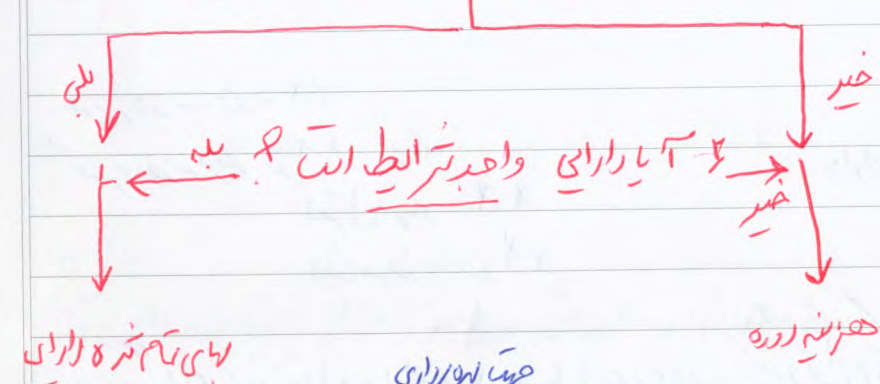 بلی
خیر
۲- آیا دارایی واجد شرایط است ؟ بله
خیر
هزینه دوره
بهای تمام شده دارایی
جهت بهره‌برداری